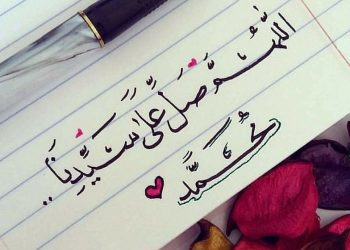 اللّٰهُمَّ صَلِّ عَلَىٰ سَيِّدِنَا..
مُحَمَّد